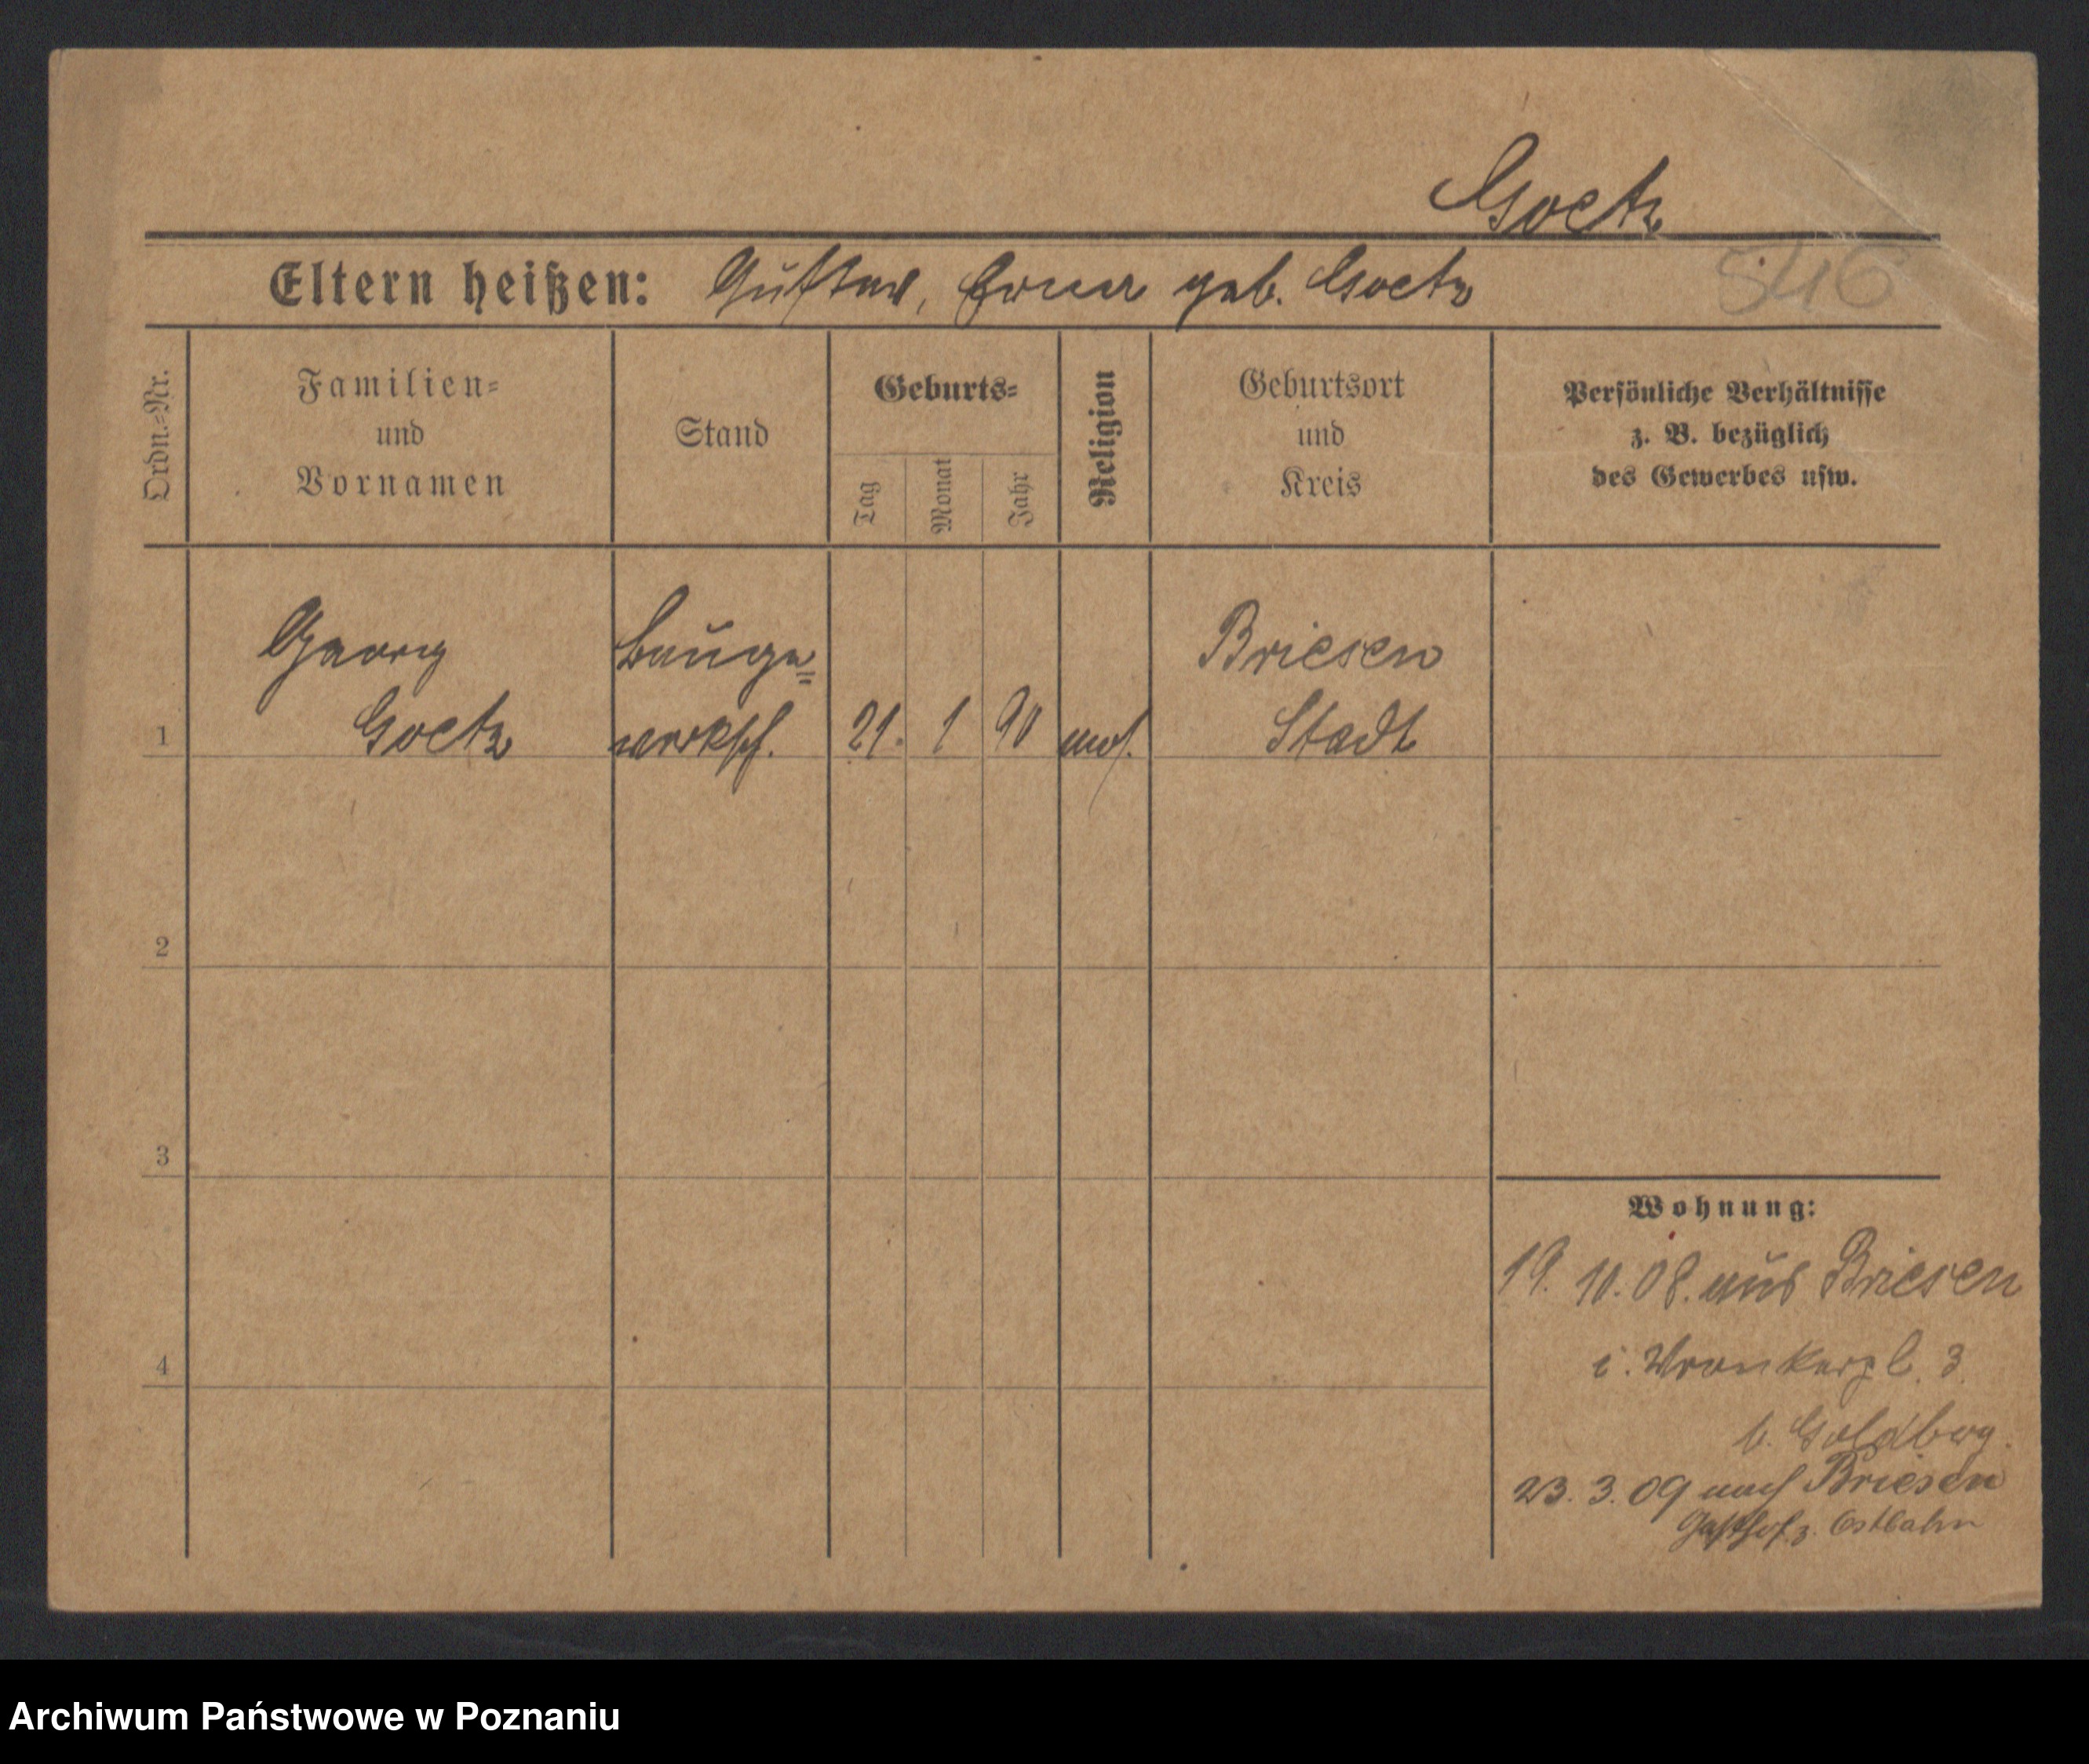 Goetz
Eltern heißen: Gustav, Erna geb. Goetz
546
Ordn.=Nr.
Familien=
und
Vornamen
Stand
Geburts=
Tag
Monat
Jahr
Religion
Geburtsort
und
Kreis
Persönliche Verhältnisse
z. B. bezüglich
des Gewerbes usw.
Georg Bauge= Briesen
1 Goetz werksch. 21. 1 90 mos. Stadt
2
3
4
Wohnung:
19. 10. 08. aus Briesen
i. Wronkerpl. 3.
b. Goldberg.
23. 3. 09 nach Briesen
Gasthof z. Ostbahn
Archiwum Państwowe w Poznaniu